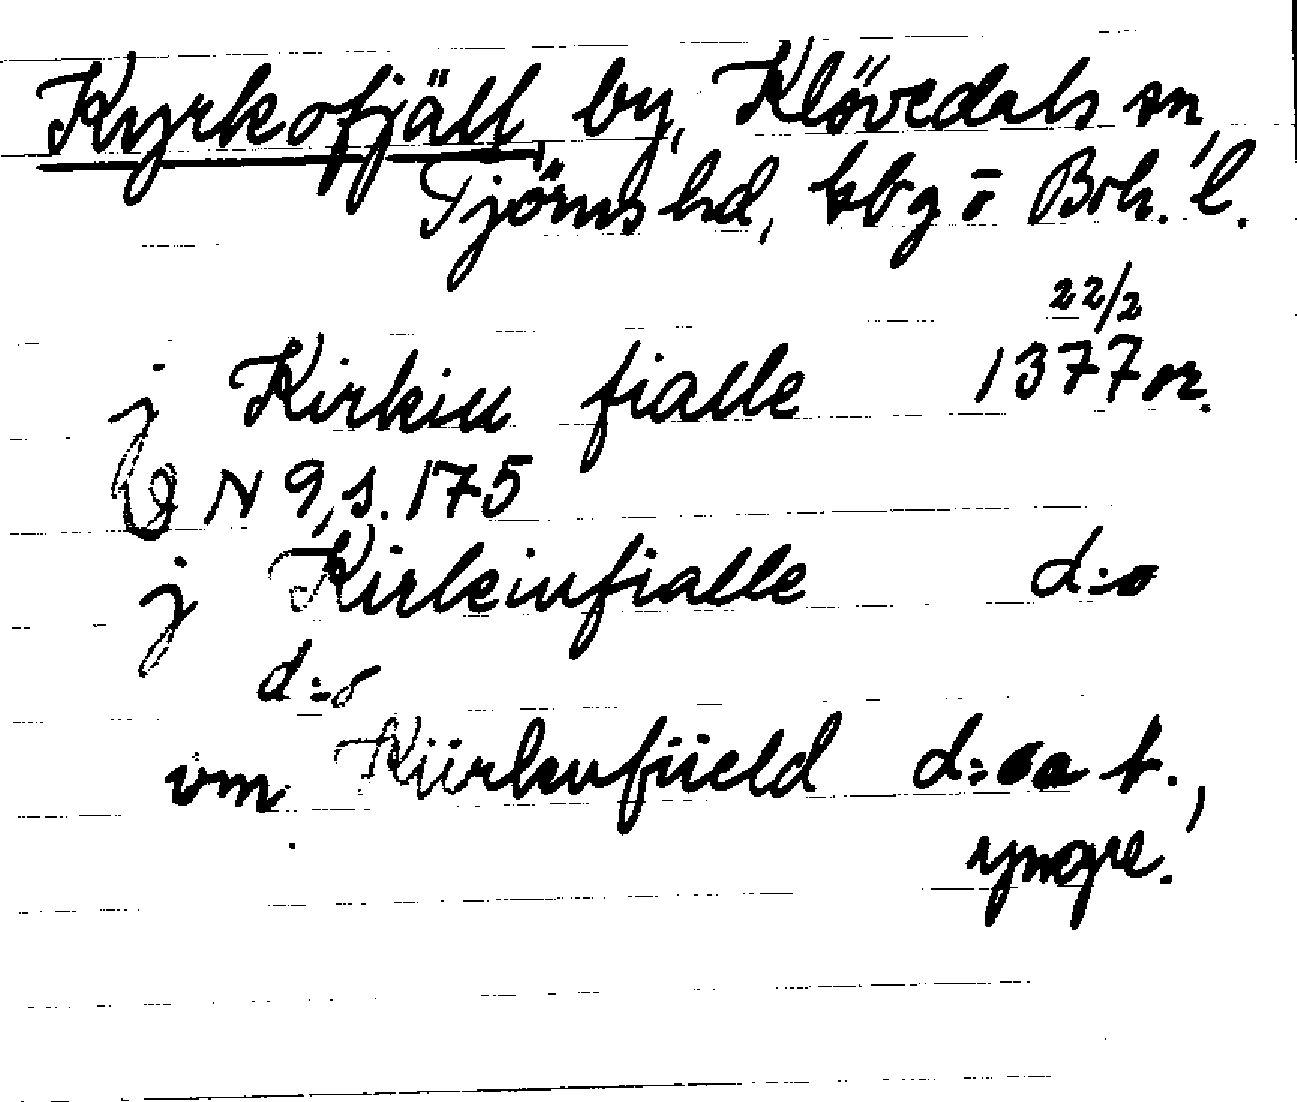 Kyrkofjäll, by, Klövedals sn,
Tjörns hd, Gbg o Boh. l.
22/2
j Kirkiu fialle 1377 or.
DN 9, s. 175
j Kirkiufialle d:o
d:o
vm Kiirkufiield d:o a t.,
yngre.